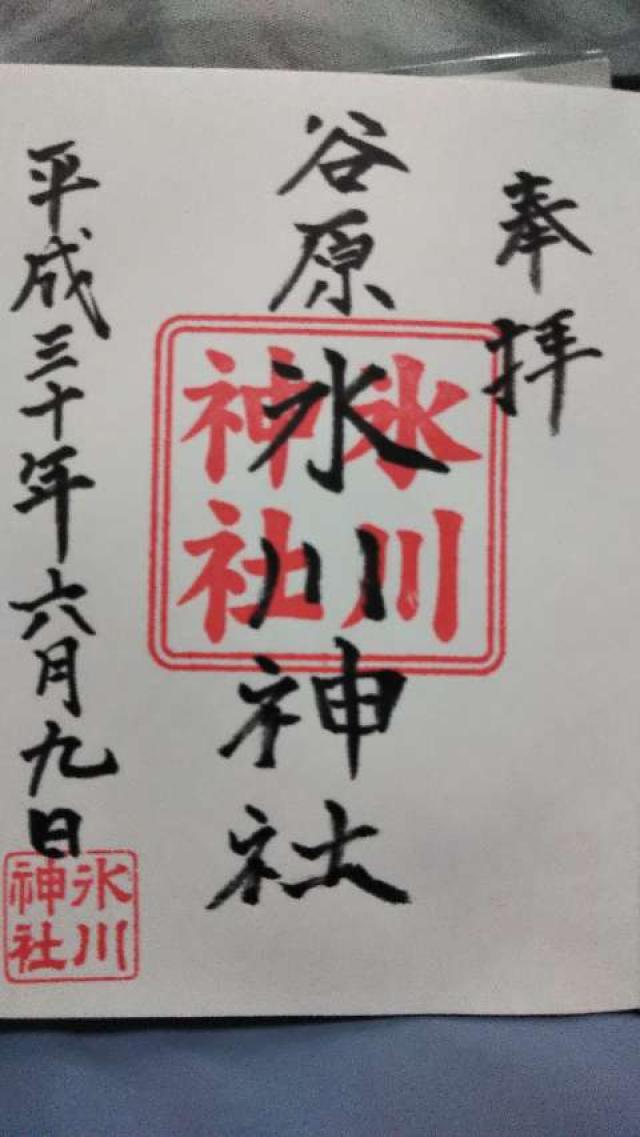 奉拝
谷原氷川神社
氷川
神社
平成三十年六月九日
氷川
神社